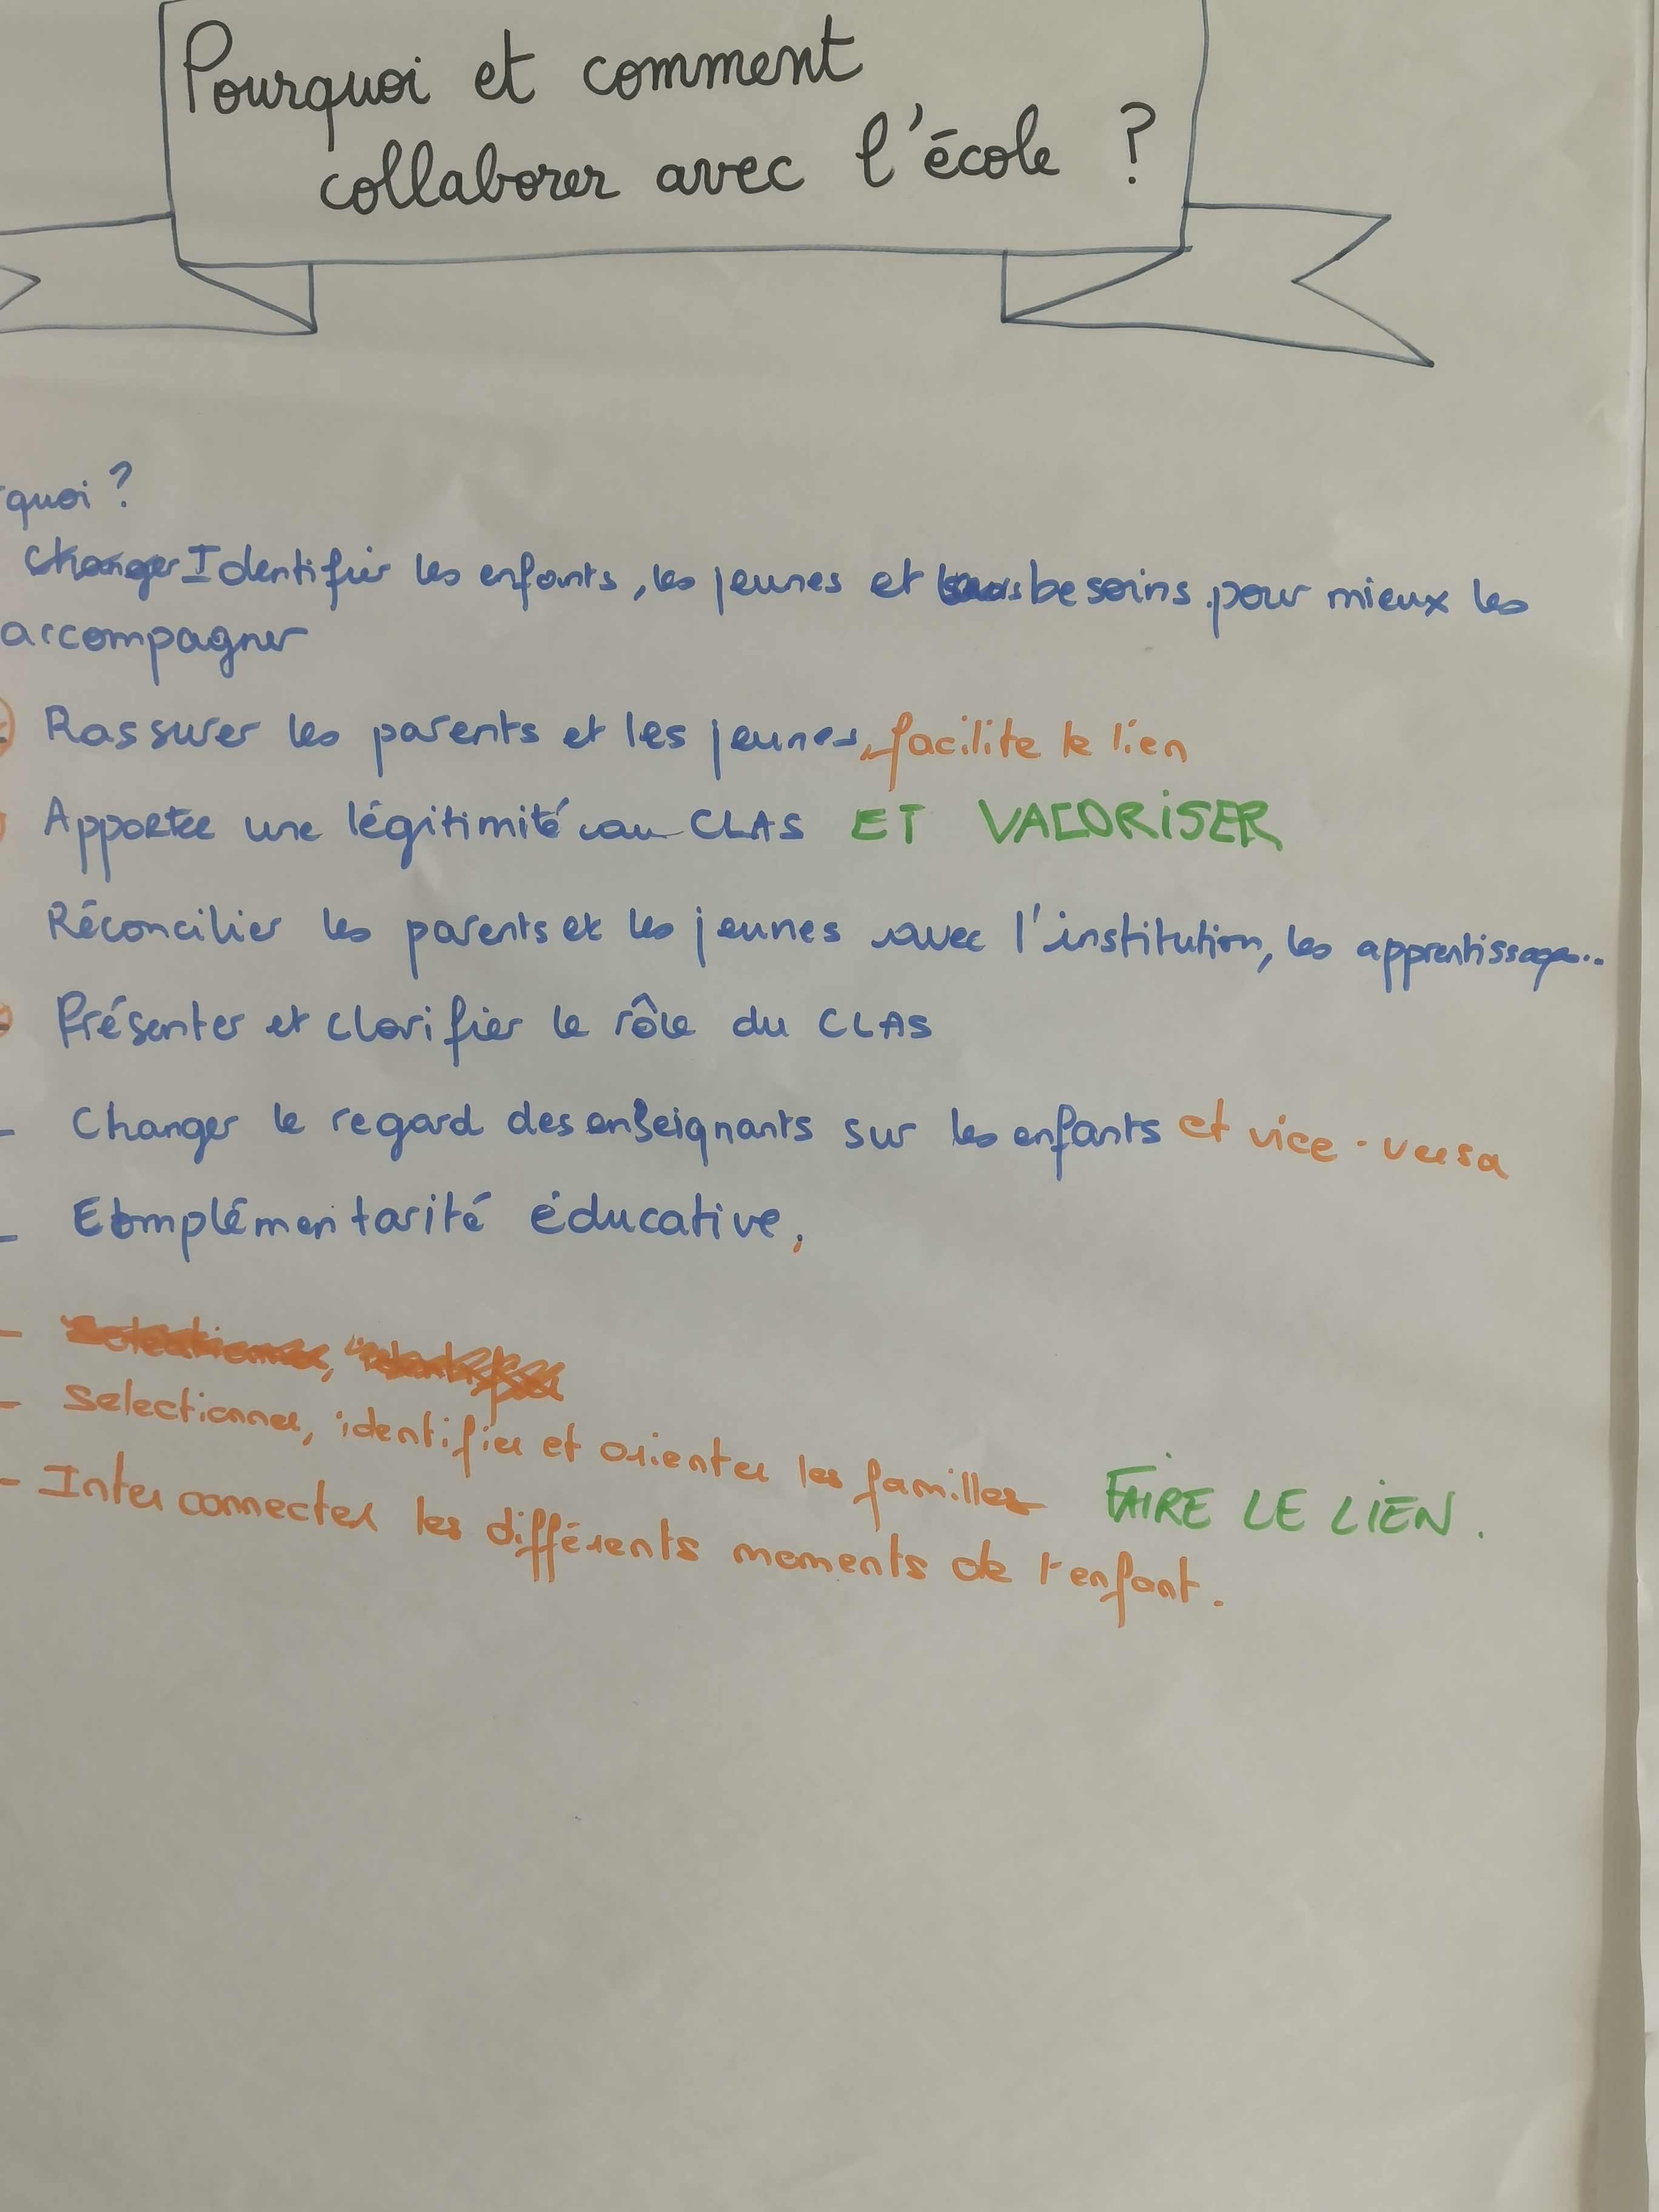 Pourquoi et comment
collaborer avec l'école ?
quoi ?
Changer Identifier les enfants, les jeunes et besoins pour mieux les
accompagner
Rassurer les parents et les jeunes, facilite le lien
Apporter une légitimité au CLAS ET VALORISER
Réconcilier les parents et les jeunes avec l'institution, les apprentissages...
Présenter et clarifier le rôle du CLAS
- Changer le regard des enseignants sur les enfants et vice-versa
- Complémentarité éducative,
- Selectionner, identifier
- Selectionner, identifier et orienter les familles FAIRE LE LIEN.
- Inter connecter les différents moments de l'enfant.